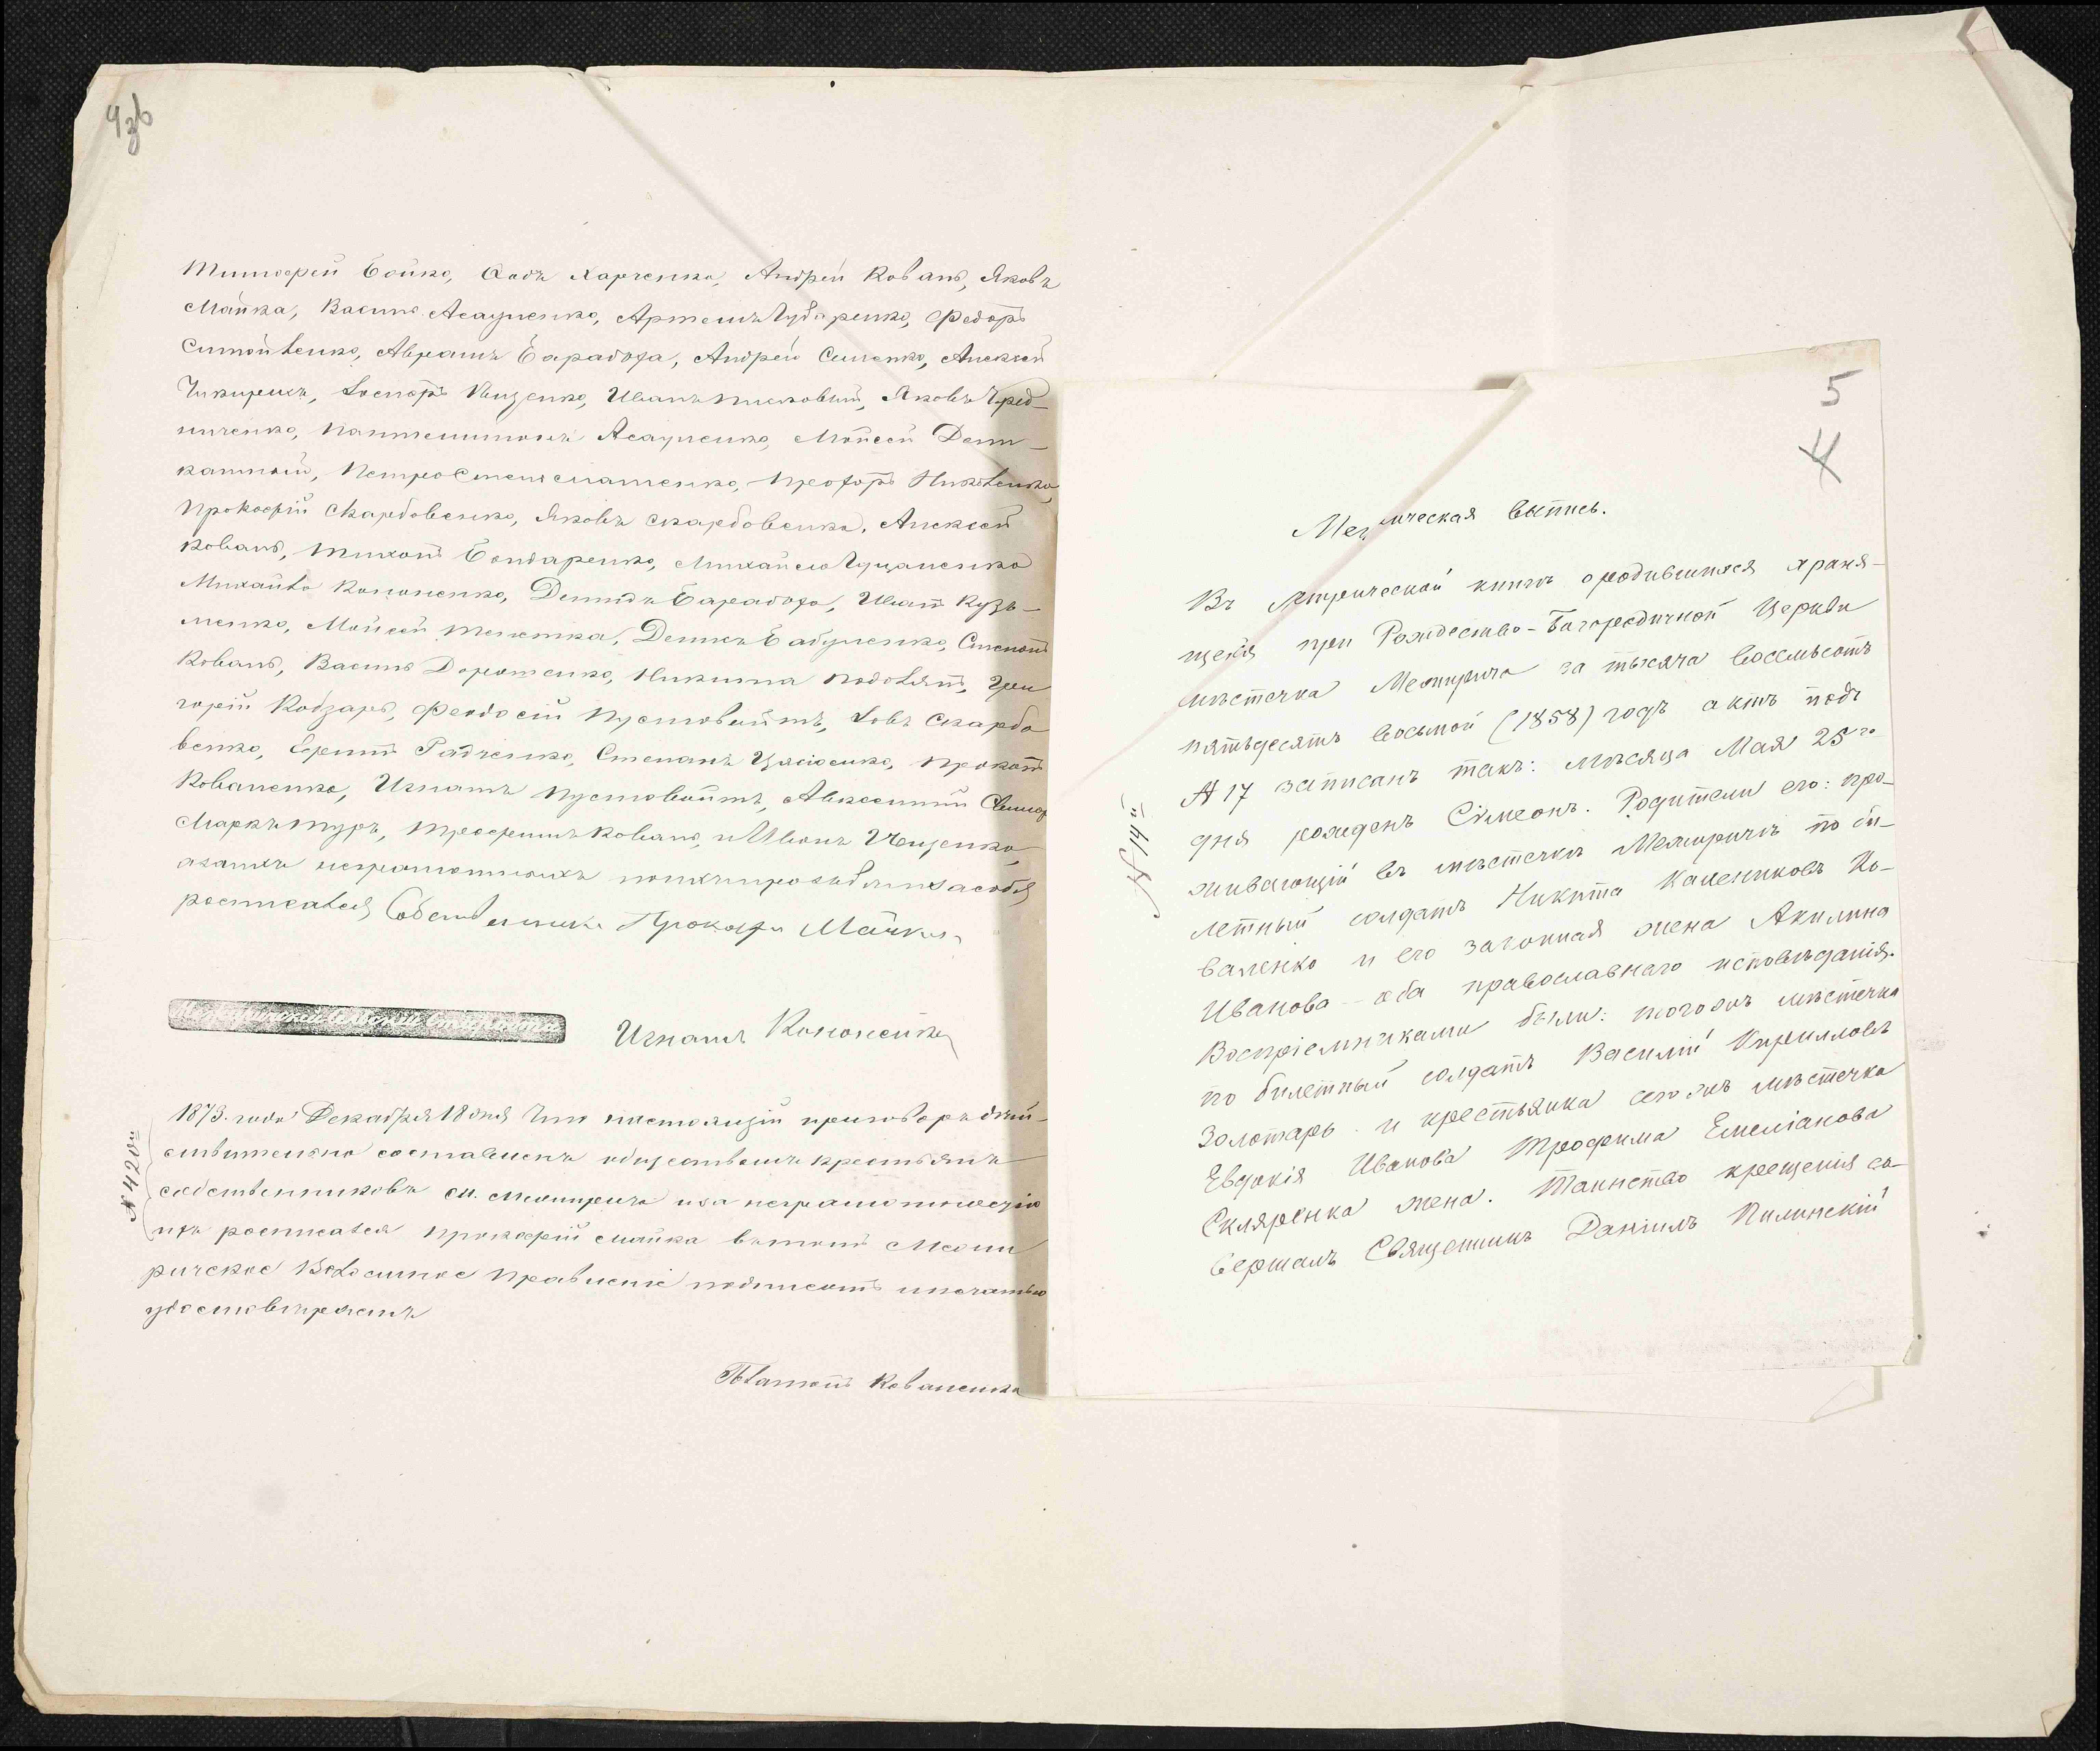 Тимофей Бойко, Сидъ Харченко, Андрей Коваль, Яковъ
Майка, Василь Асауленко, Артемъ Губаренко, Федоръ
Самойленко, Аврамъ Барабоха, Андрей Симонко, Алексей
Нестеръ Ктценко, Иванъ Яковъ Черед-
ниченко, Пантелимонъ Асауленко, Мойсей Дели-
катный, Петро Стенсмашенко, Прохоръ Николенко,
Прокофій Скарбовенко, Яковъ Скарбовенко, Алексей
Коваль, Тихонъ Бондаренко, Михайло Гуцаленко
Михайло Кононенко, Демидъ Барабоха, Иванъ Кузь-
менко, Мойсей Телетка, Денисъ Бабуленко, Степанъ
Коваль, Василь Дорошенко, Никита Подолян, Гри
горій Кобзарь, Феодосій Пустовойтъ, Іовъ Скарбо
венко, Ефимъ Радченко, Степанъ Прокопъ
Коваленко, Игнатъ Пустовойтъ, Авксентий
Маркъ Туръ, Трофимъ Коваль, и Иванъ Ищенко,
а за нихъ неграмотныхъ по ихъ прозьбѣ и за себя
росписался Собственникъ Прокофи Майка
Межиричский Сельский Староста
Игнатъ Кононенко
1873. года Декабря 18 дня Что настоящій приговоръ дѣй-
ствительно составленъ обществомъ крестьянъ
собственниковъ м. Межирича и за неграмотностію
ихъ росписался Прокофій Майка въ томъ Межи
ричское Волосное Правленіе подписомъ и печатью
удостовѣряетъ
№ 420й
Платонъ Коваленко
4 зв
5
4
Метрическая выпись.
Въ метрической книгѣ о родившихся храня-
щейся при Рождество-Богородичной Церкви
мѣстечка Межирича за тысяча восемьсотъ
пятьдесятъ восьмой (1858) годъ актъ подъ
№ 17 записанъ такъ: Мѣсяца Мая 25го
дня рожденъ Сѵмеонъ. Родители его: про-
живающій въ мѣстечкѣ Межиричѣ по би-
летный солдатъ Никита Калениковъ Ко-
валенко и его законная жена Акилина
Иванова — оба православнаго исповѣданія.
Воспріемниками были: тогожъ мѣстечка
по билетный солдатъ Василій Кирилловъ
Золотарь и крестьянка сегожъ мѣстечка
Евдокія Иванова Трофима Емеліанова
Скляренка жена. Таинство крещенія со-
вершалъ Священникъ Даніилъ Пилинскій
№ 14й